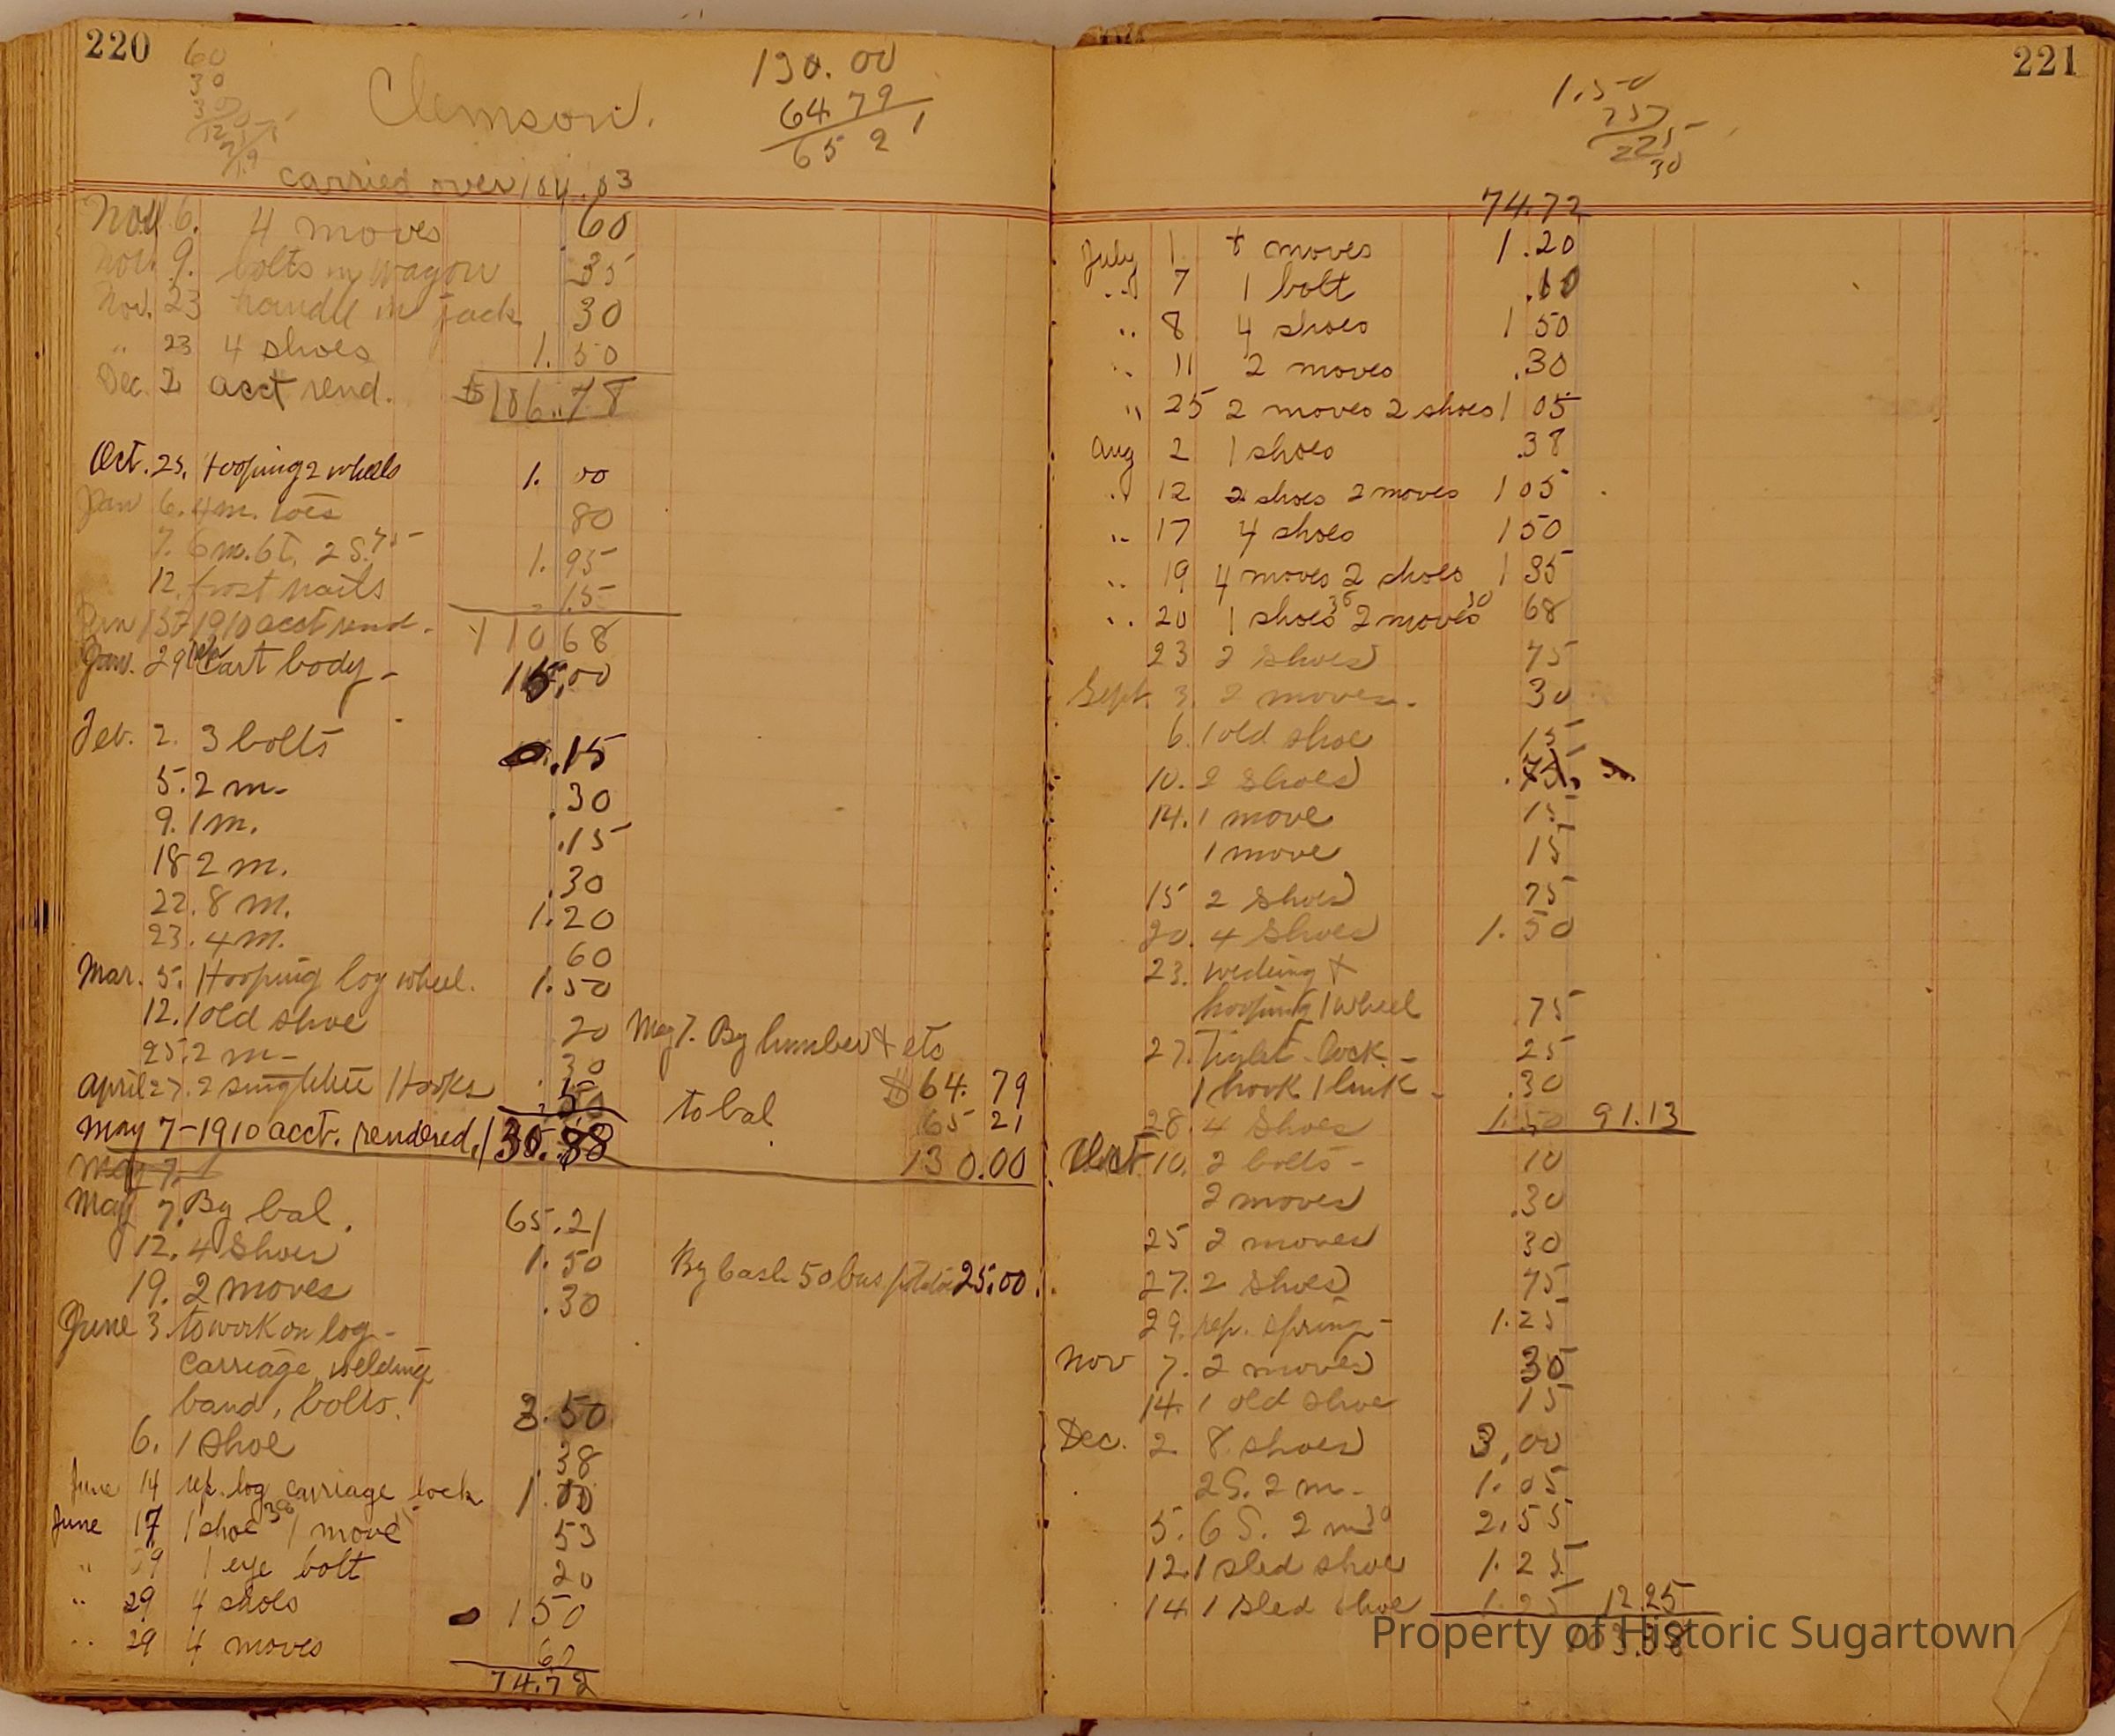 220
60
30
Clemson.
130.00
64 79
65 21
carried over 104.03
Nov 6. 4 moves 60
Nov. 9. bolts in wagon 35
Nov. 23 handle in jack 30
" 23 4 shoes 1.50
Dec. 2 acct rend. $106.78
Oct. 25. Hooping 2 wheels 1.00
Jan 6. 4 m. toes 80
7. 6 m. 6 t. 2 S. 75 1.95
12. frost nails .15
Jan 15 1910 acct rend. 110 68
Jan. 29 Cart body - 15.00
Feb. 2. 3 bolts .15
5. 2 m. .30
9. 1 m. .15
18 2 m. .30
22. 8 m. 1.20
23. 4 m. 60
Mar. 5. Hooping log wheel. 1.50
12. 1 old shoe 20
25. 2 m - 30
April 27. 2 singletree Hooks .50
May 7-1910 acct. rendered, 130.88
May 7. By lumber & etc
$64.79
to bal 65 21
130.00
May 7.
May 7. By bal. 65.21
12. 4 Shoes 1.50
19. 2 moves .30
By cash 50 bus 25.00
June 3. to work on log -
carriage, welding
band, bolts. 3.50
6. 1 shoe .38
June 14 rep. log carriage lock 1.00
June 17 1 shoe 38 1 move 15 53
" 1 eye bolt 20
" 29 4 shoes 1 50
" 29 4 moves 60
74.72
221
1.50
74.72
July 1. 8 moves 1.20
" 7 1 bolt .10
" 8 4 shoes 1 50
" 11 2 moves .30
" 25 2 moves 2 shoes 1 05
Aug 2 1 shoes .38
" 12 2 shoes 2 moves 1 05
" 17 4 shoes 1 50
" 19 4 moves 2 shoes 1 35
" 20 1 shoes 38 2 moves 30 68
23 2 shoes 75
Sept. 3. 2 moves. 30
6. 1 old shoe 15
10. 2 Shoes .75
14. 1 move 15
1 move 15
15 2 Shoes 75
20. 4 Shoes 1.50
23. weding &
hooping 1 wheel .75
27. Tight. lock - 25
1 hook 1 link - .30
28. 4 Shoes 1.50 91.13
Oct 10. 2 bolts - 10
2 moves .30
25 2 moves 30
27. 2 Shoes 75
29. rep. spring - 1.25
Nov 7. 2 moves 30
14. 1 old shoe 15
Dec. 2. 8 shoes 3.00
2 S. 2 m - 1.05
5. 6 S. 2 m 30 2.55
12. 1 sled shoe 1.25
14 1 sled shoe 1.25 12.25
103.38
Property of Historic Sugartown